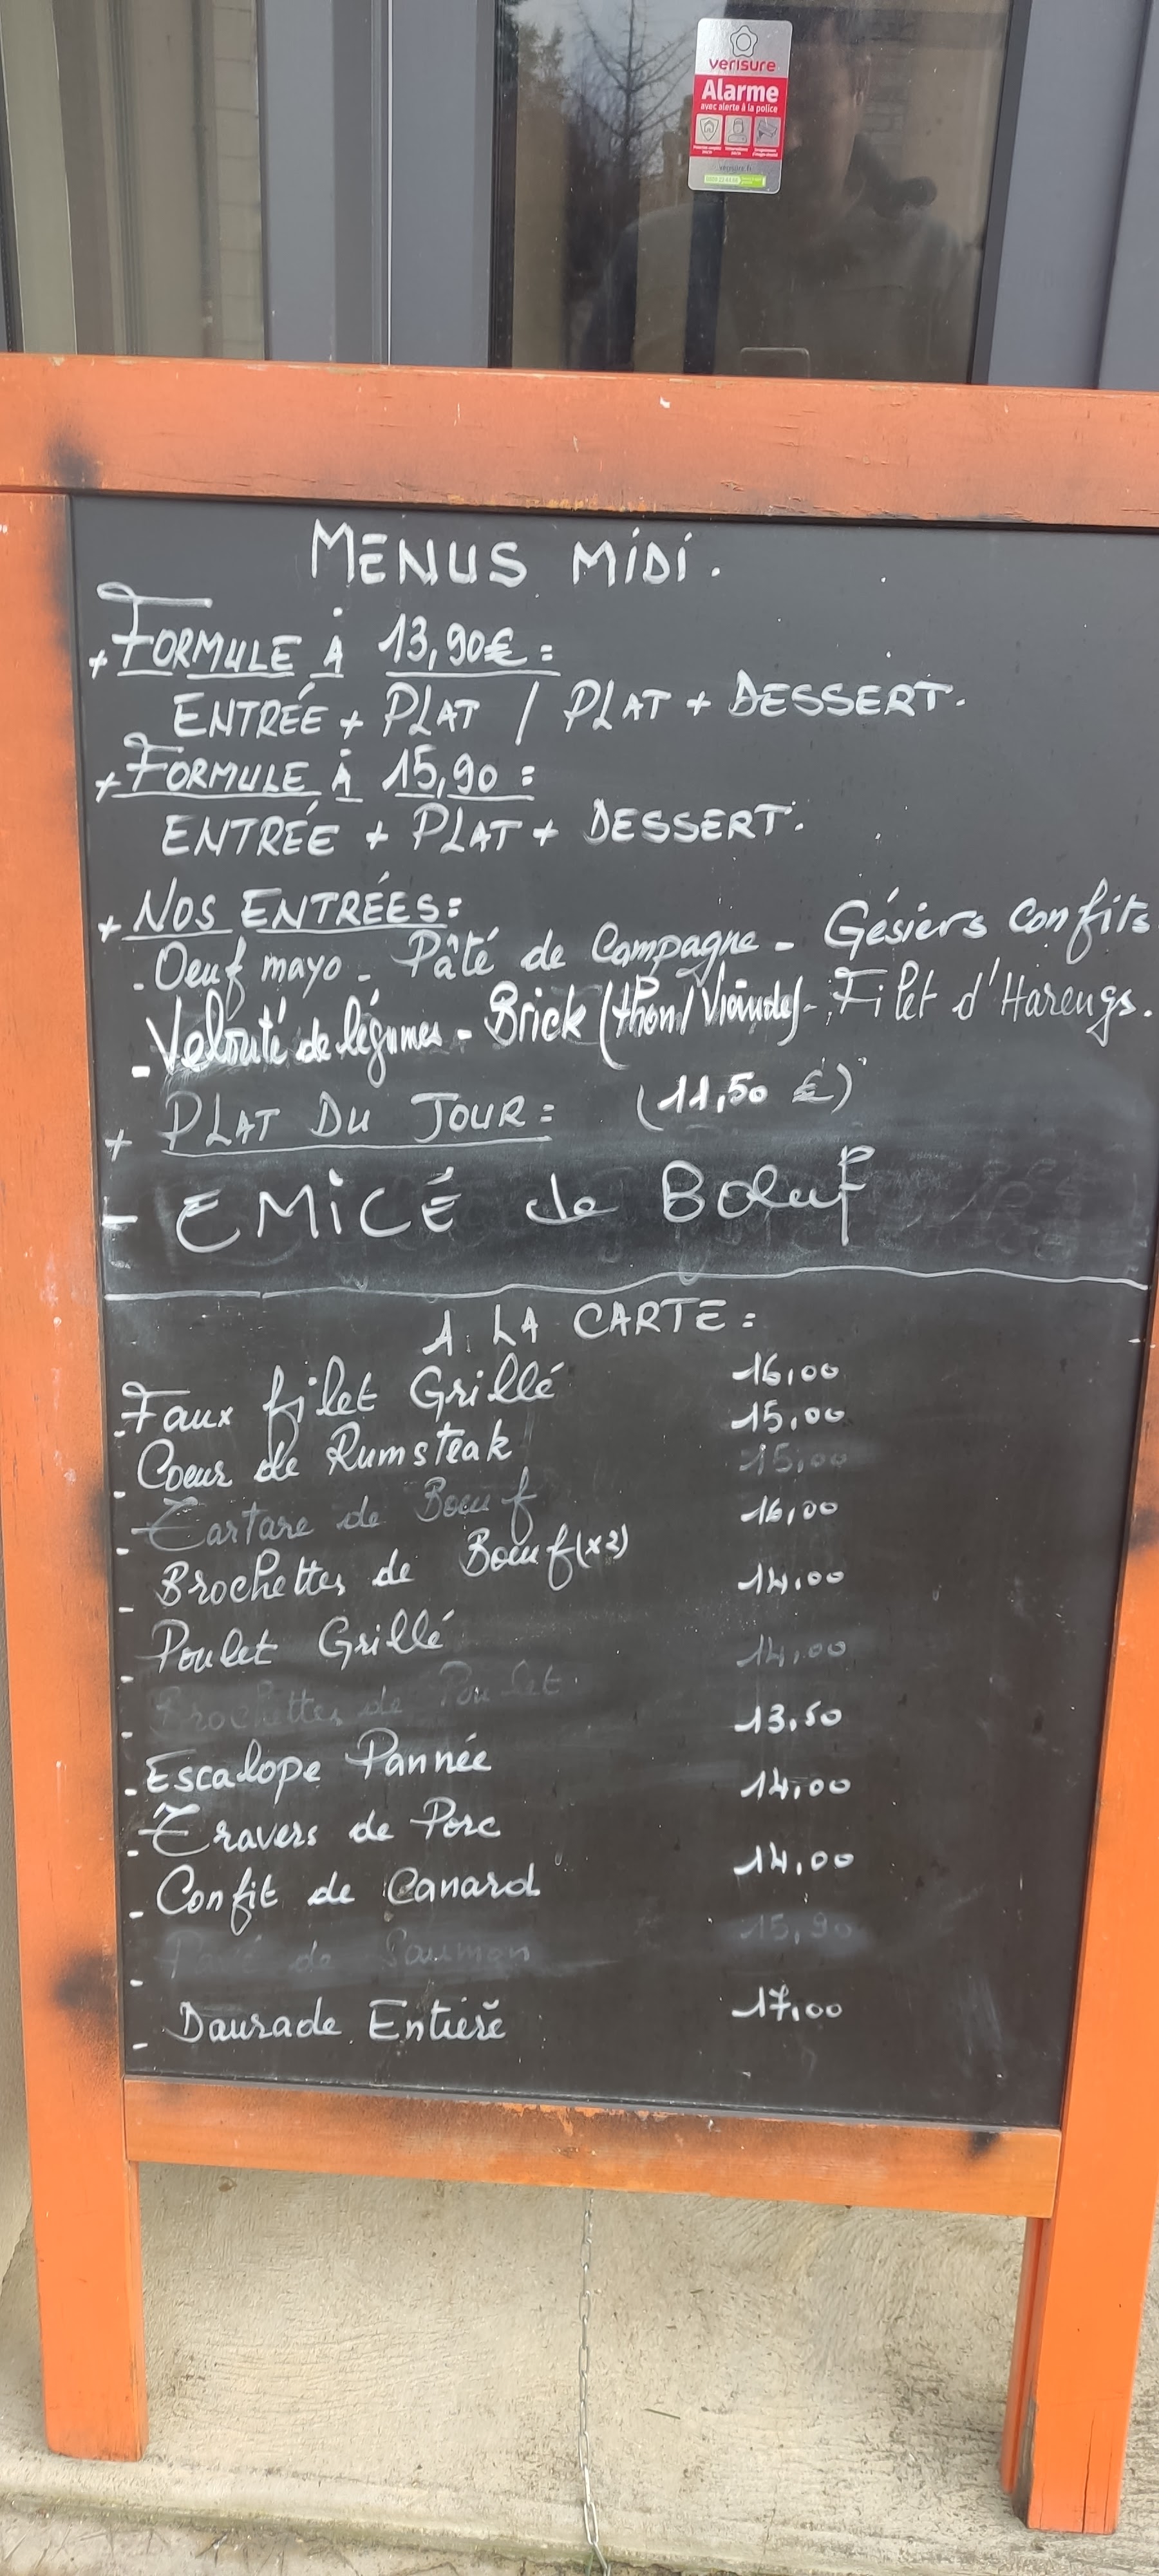 verisure
Alarme
avec alerte à la police
verisure.fr
MENUS MiDi.
+ FORMULE À 13,90€ =
ENTRÉE + PLAT / PLAT + DESSERT.
+ FORMULE À 15,90 :
ENTRÉE + PLAT + DESSERT.
+ NOS ENTRÉES:
- Oeuf mayo - Pâté de Campagne - Gésiers Confits
- Velouté de légumes - Brick (thon/Viande) - Filet d'Harengs.
+ PLAT DU JOUR = (11,50 €)
- EMiCÉ de Boeuf
A LA CARTE =
- Faux filet Grillé 16,00
- Coeur de Rumsteak 15,00
- Tartare de Boeuf 15,00
- Brochettes de Boeuf (x2) 16,00
- Poulet Grillé 14,00
- Brochettes de Poulet 14,00
- Escalope Pannée 13,50
- Travers de Porc 14,00
- Confit de Canard 14,00
- Pavé de Saumon 15,90
- Daurade Entière 17,00